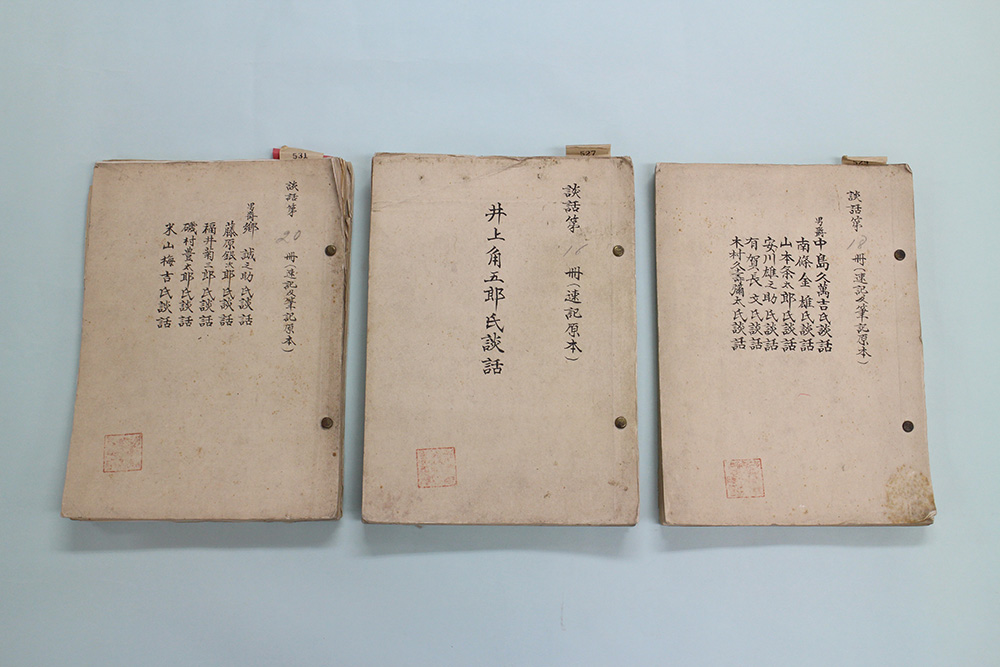 531
談話第
20
冊(速記及筆記原本)
男爵郷 誠之助氏談話
藤原銀次郎氏談話
福井菊三郎氏談話
磯村豊太郎氏談話
米山梅吉氏談話
527
談話第
冊(速記原本)
井上角五郎氏談話
談話第
18
冊(速記及筆記原本)
男爵中島久萬吉氏談話
南條金雄氏談話
山本条太郎氏談話
安川雄之助氏談話
有賀長文氏談話
木村久寿彌太氏談話